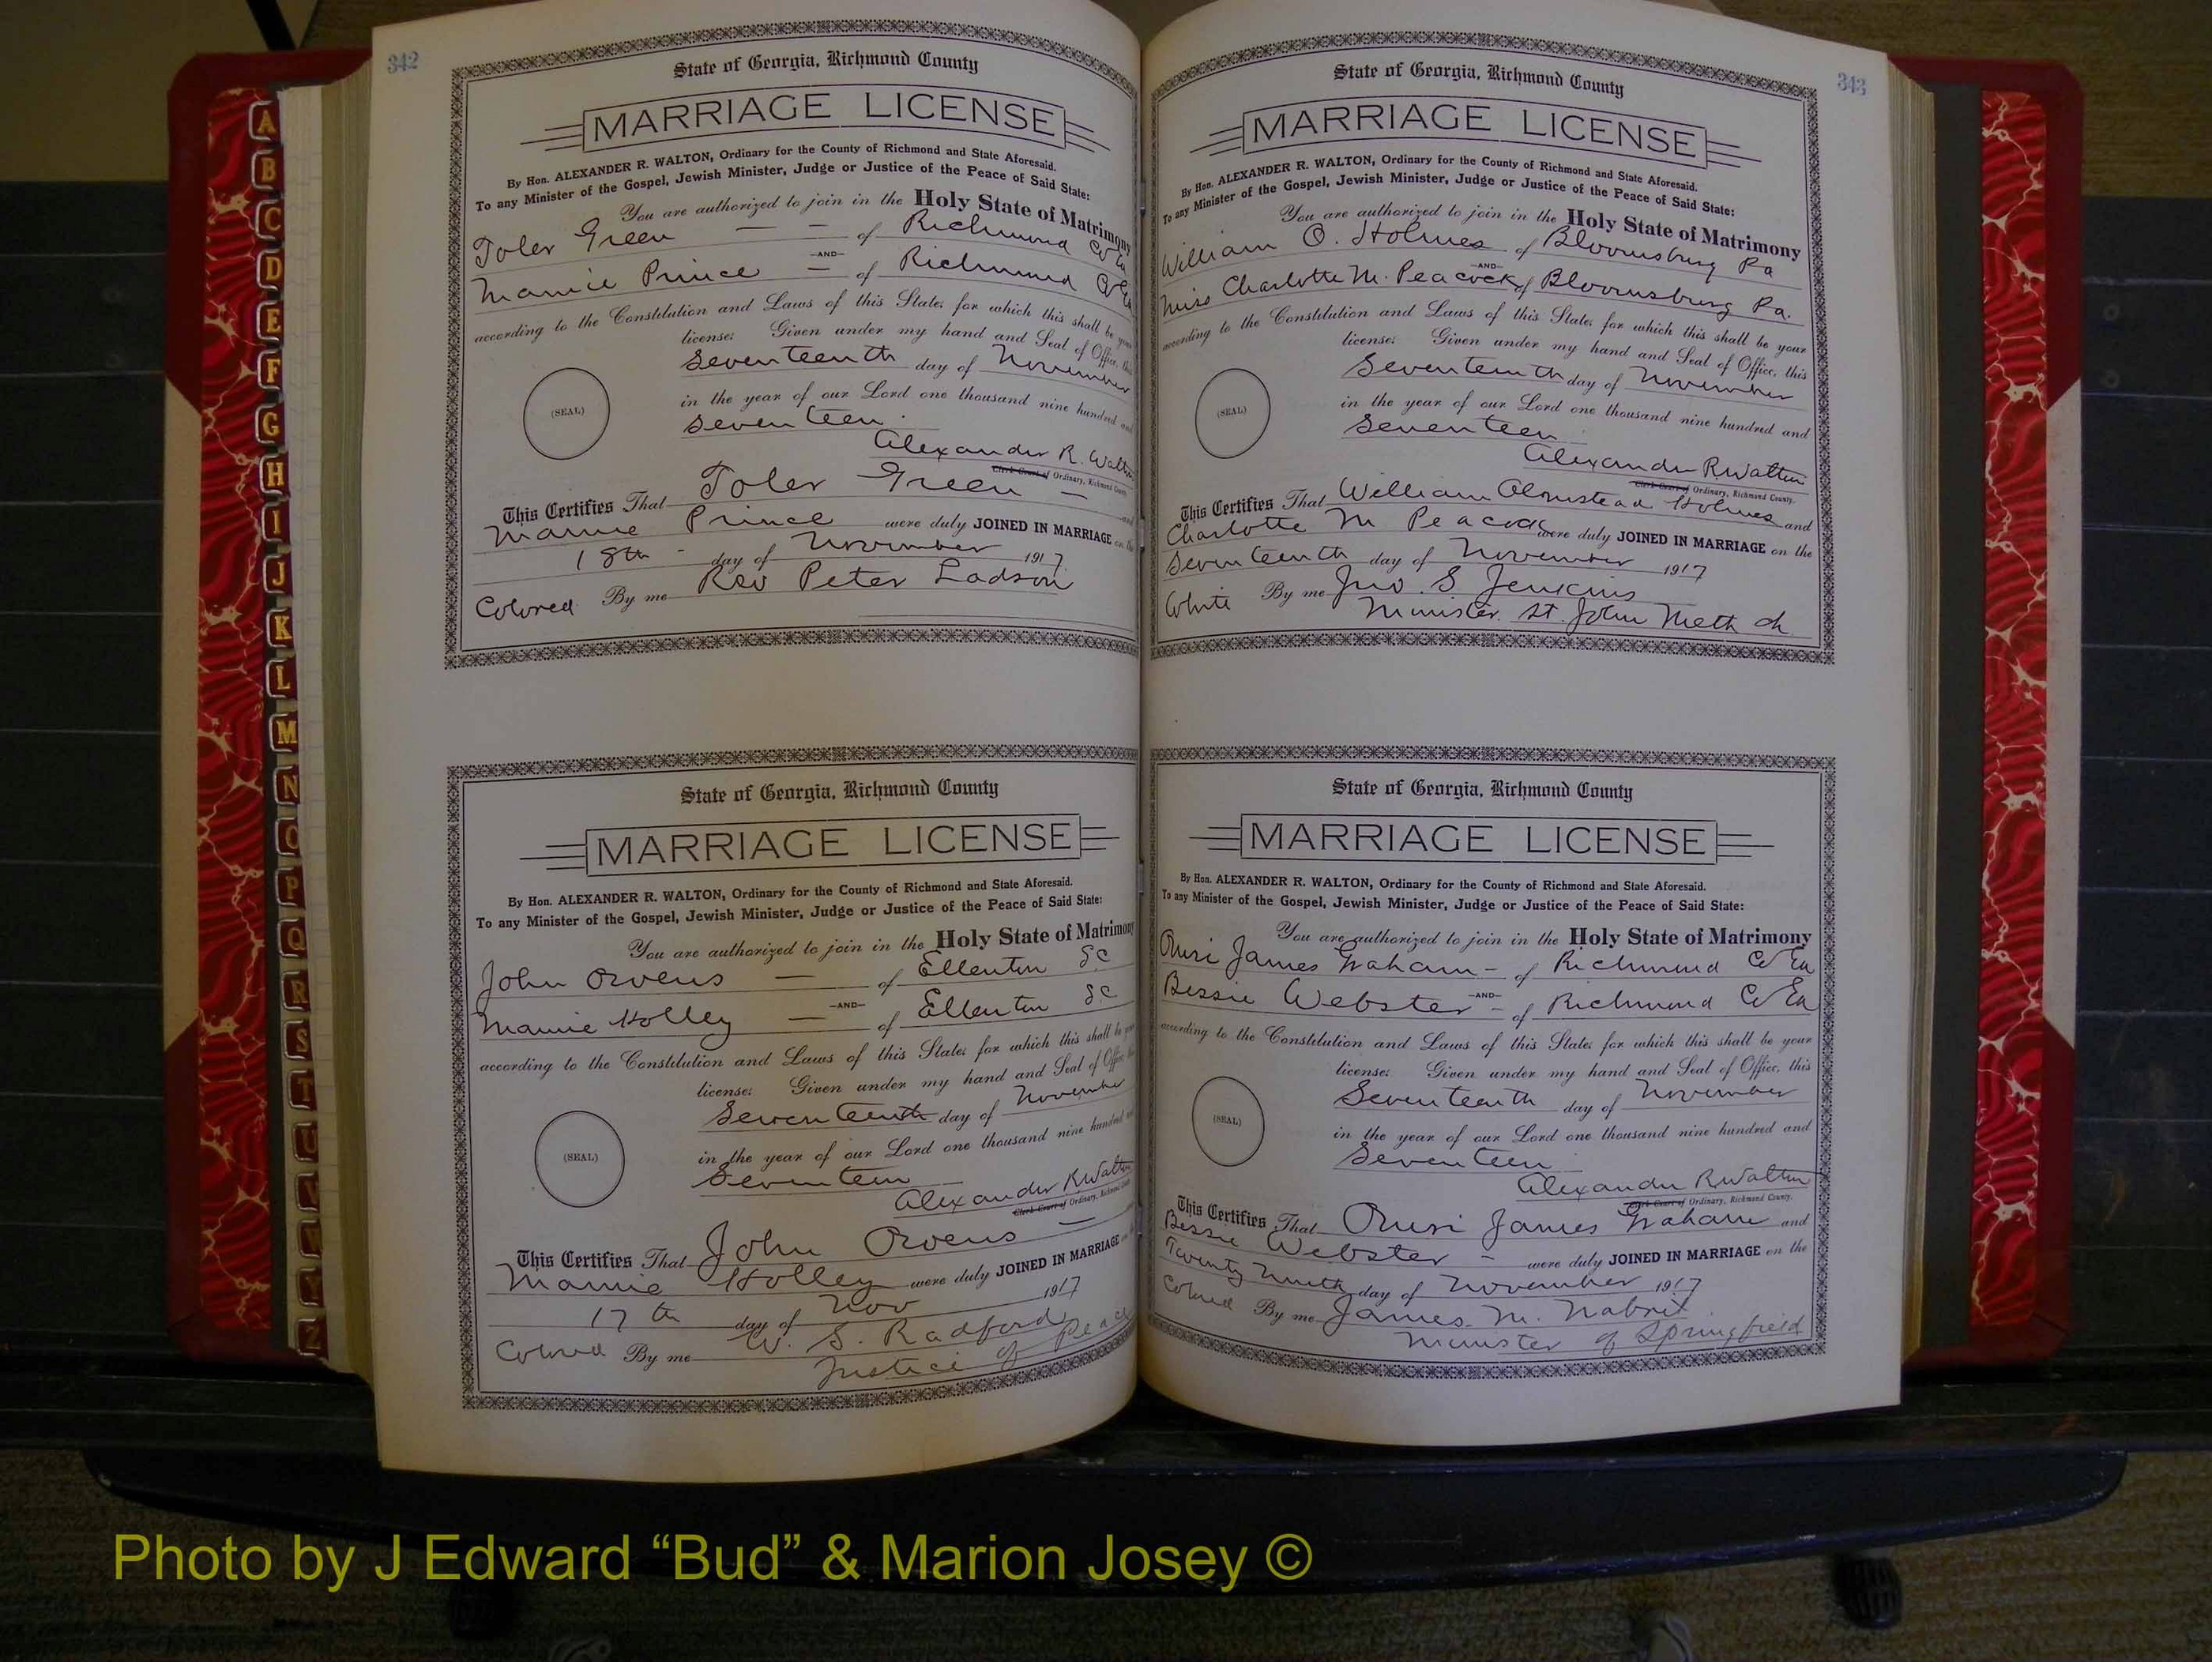 342
State of Georgia, Richmond County
MARRIAGE LICENSE
By Hon. ALEXANDER R. WALTON, Ordinary for the County of Richmond and State Aforesaid.
To any Minister of the Gospel, Jewish Minister, Judge or Justice of the Peace of Said State:
You are authorized to join in the Holy State of Matrimony
Toler Green — — of Richmond Co Ga
—AND—
Mamie Prince — of Richmond Co Ga
according to the Constitution and Laws of this State, for which this shall be your
license: Given under my hand and Seal of Office, this
Seventeenth day of November
(SEAL)
in the year of our Lord one thousand nine hundred and
Seventeen
Alexander R. Walton
Clerk Court of Ordinary, Richmond County.
This Certifies That Toler Green — and
Mamie Prince were duly JOINED IN MARRIAGE on the
18th - day of November 1917
Colored By me Rev Peter Ladson
State of Georgia, Richmond County
MARRIAGE LICENSE
By Hon. ALEXANDER R. WALTON, Ordinary for the County of Richmond and State Aforesaid.
To any Minister of the Gospel, Jewish Minister, Judge or Justice of the Peace of Said State:
You are authorized to join in the Holy State of Matrimony
John Owens — of Ellenton S.C
—AND—
Mamie Holley — of Ellenton S.C
according to the Constitution and Laws of this State, for which this shall be your
license: Given under my hand and Seal of Office, this
Seventeenth day of November
(SEAL)
in the year of our Lord one thousand nine hundred and
Seventeen
Alexander R Walton
Clerk Court of Ordinary, Richmond County.
This Certifies That John Owens —
Mamie Holley were duly JOINED IN MARRIAGE on the
17th day of Nov 1917
Colored By me W. S. Radford
Justice of Peace
343
State of Georgia, Richmond County
MARRIAGE LICENSE
By Hon. ALEXANDER R. WALTON, Ordinary for the County of Richmond and State Aforesaid.
To any Minister of the Gospel, Jewish Minister, Judge or Justice of the Peace of Said State:
You are authorized to join in the Holy State of Matrimony
William O. Holmes of Bloomsburg Pa
—AND—
Miss Charlotte M. Peacock of Bloomsburg Pa.
according to the Constitution and Laws of this State, for which this shall be your
license: Given under my hand and Seal of Office, this
Seventeenth day of November
(SEAL)
in the year of our Lord one thousand nine hundred and
Seventeen
Alexander R Walton
Clerk Court of Ordinary, Richmond County.
This Certifies That William Olmstead Holmes and
Charlotte M Peacock were duly JOINED IN MARRIAGE on the
Seventeenth day of November 1917
White By me Jno. S Jenkins
Minister. St. John Meth ch
State of Georgia, Richmond County
MARRIAGE LICENSE
By Hon. ALEXANDER R. WALTON, Ordinary for the County of Richmond and State Aforesaid.
To any Minister of the Gospel, Jewish Minister, Judge or Justice of the Peace of Said State:
You are authorized to join in the Holy State of Matrimony
James Graham — of Richmond Co Ga
—AND—
Bessie Webster — of Richmond Co Ga
according to the Constitution and Laws of this State, for which this shall be your
license: Given under my hand and Seal of Office, this
Seventeenth day of November
(SEAL)
in the year of our Lord one thousand nine hundred and
Seventeen
Alexander R Walton
Clerk Court of Ordinary, Richmond County.
This Certifies That James Graham and
Bessie Webster — were duly JOINED IN MARRIAGE on the
Twenty Ninth day of November 1917
Colored By me James. M. Nabrit
Minister of Springfield
A
B
C
D
E
F
G
H
I
J
K
L
M
N
O
P
Q
R
S
T
U
V
W
X
Y
Z
Photo by J Edward “Bud” & Marion Josey ©